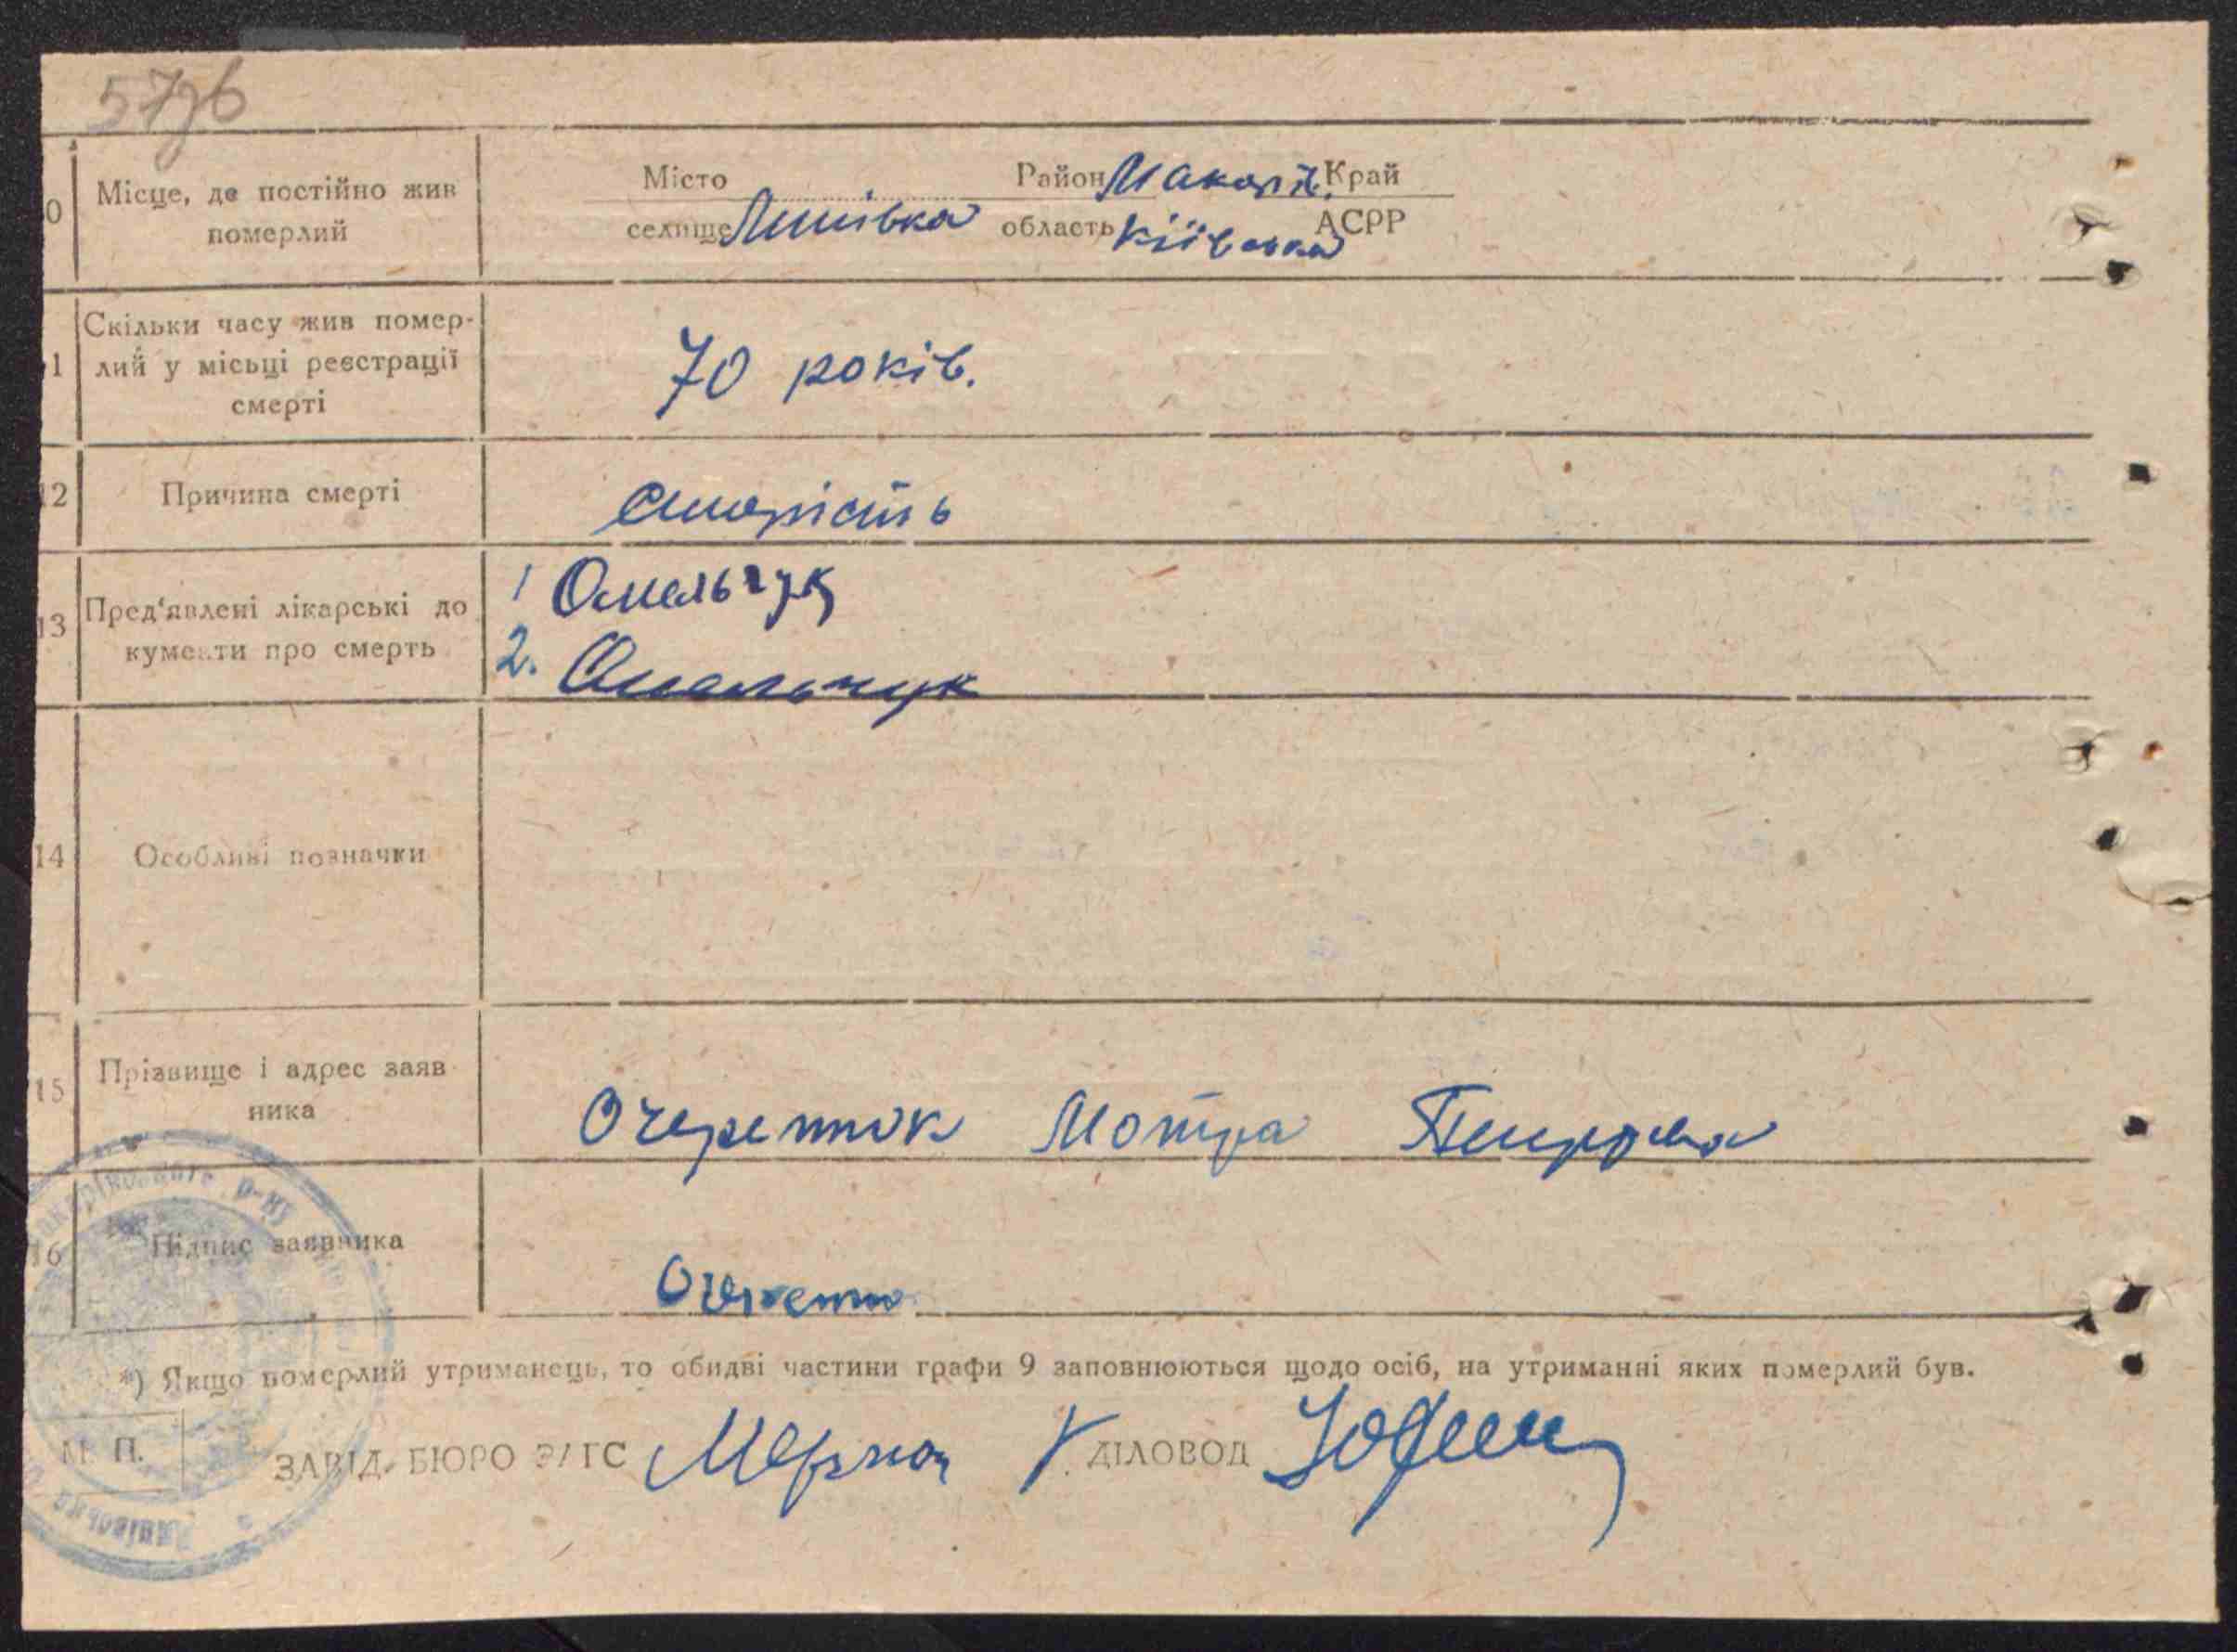 57зб
0 Місце, де постійно жив померлий
Місто Район Макарів. Край
селище Липівка область Київська АСРР
11 Скільки часу жив помер-
лий у місьці реєстрації
смерті
70 років.
12 Причина смерті старість
13 Пред'явлені лікарські до
кументи про смерть
1 Омельчук
2. Омельчук
14 Особливі позначки
15 Прізвище і адрес заяв
ника
Очеретюк Мотра
16 Підпис заявника
*) Якщо померлий утриманець, то обидві частини графи 9 заповнюються щодо осіб, на утриманні яких померлий був.
М. П.
ЗАВІД. БЮРО ЗАГС ДІЛОВОД
р-ну